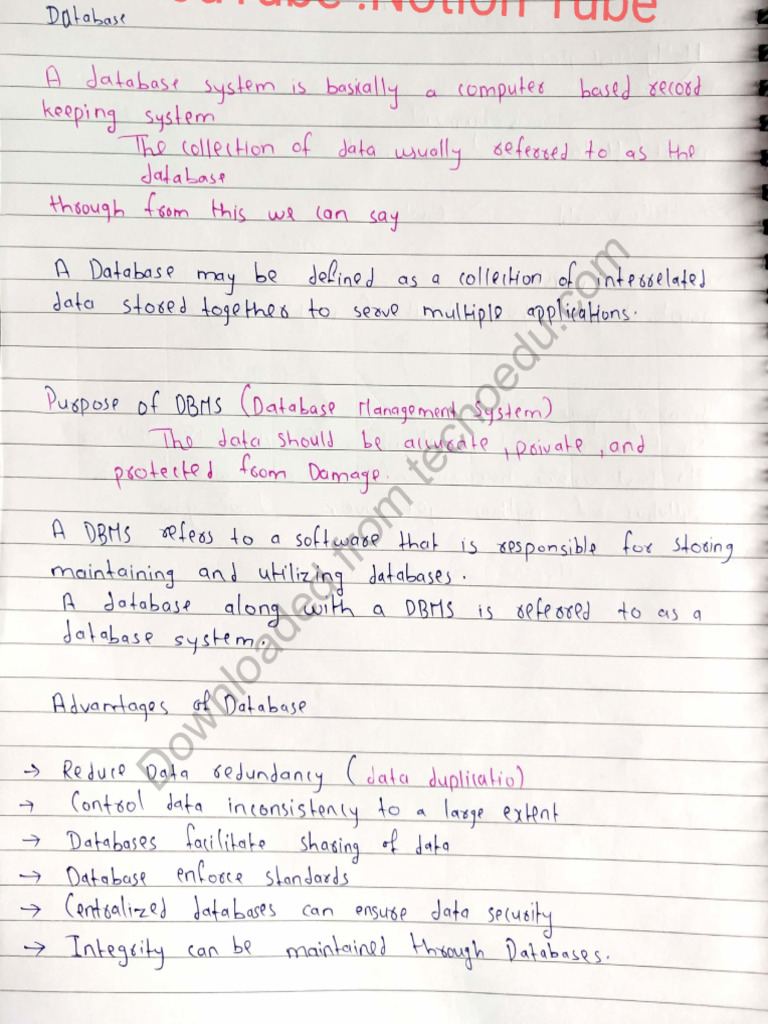 YouTube :Notion Tube
Database
A database system is basically a computer based record
keeping system
The collection of data usually referred to as the
database
through from this we can say
A Database may be defined as a collection of interrelated
data stored together to serve multiple applications.
Purpose of DBMS (Database Management System)
The data should be accurate, private, and
protected from Damage.
A DBMS refers to a software that is responsible for storing
maintaining and utilizing databases.
A database along with a DBMS is referred to as a
database system.
Advantages of Database
→ Reduce Data redundancy (data duplicatio)
→ Control data inconsistency to a large extent
→ Databases facilitate sharing of data
→ Database enforce standards
→ Centralized databases can ensure data security
→ Integrity can be maintained through Databases.
Downloaded from techoedu.com